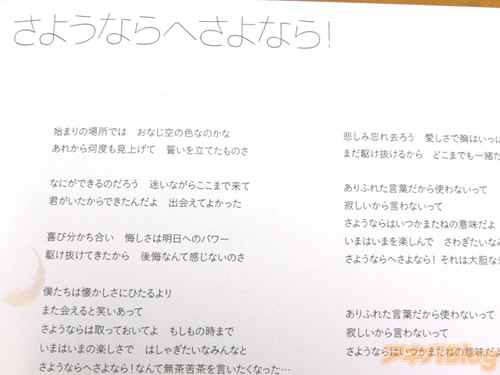 さようならへさよなら!
始まりの場所では　おなじ空の色なのかな
あれから何度も見上げて　誓いを立てたものさ
なにができるのだろう　迷いながらここまで来て
君がいたからできたんだよ　出会えてよかった
喜び分かち合い　悔しさは明日へのパワー
駆け抜けてきたから　後悔なんて感じないのさ
僕たちは懐かしさにひたるより
また会えると笑いあって
さようならは取っておいてよ　もしもの時まで
いまはいまの楽しさで　はしゃぎたいなみんなと
さようならへさよなら!なんて無茶苦茶を言いたくなった…
悲しみ忘れ去ろう　愛しさで胸はいっぱ
まだ駆け抜けるから　どこまでも一緒だ
ありふれた言葉だから使わないって
寂しいから言わないって
さようならはいつかまたねの意味だよ
いまはいまを楽しんで　さわぎたいなみ
さようならへさよなら! それは大胆な
ありふれた言葉だから使わないって
寂しいから言わないって
さようならはいつかまたねの意味だよ
アキバBlog